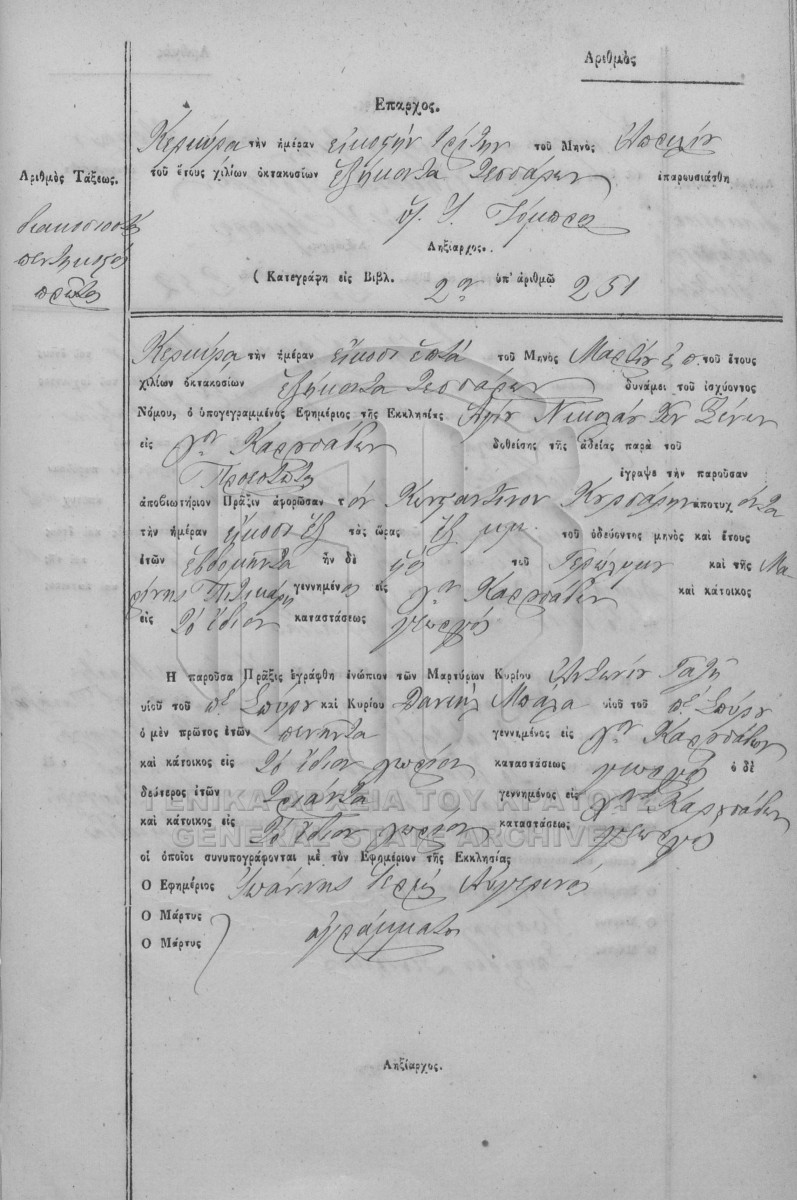 Αριθμὸς
Επαρχος.
Κερκύρα τὴν ἡμέραν εἰκοστὴν τρίτην τοῦ Μηνὸς Απριλίου
τοῦ ἔτους χιλίων ὀκτακοσίων ἑξήκοντα τεσσάρων ἐπαρουσιάσθη
Αριθμὸς Τάξεως.
διακοσιοστὸς
πεντηκοστὸς
πρῶτος
Ληξίαρχος.
( Κατεγράφη εἰς Βιβλ. 2ον ὑπ' ἀριθμῷ 251
Κερκύρα τὴν ἡμέραν εἴκοσι ἑπτά τοῦ Μηνὸς Μαρτίου τοῦ ἔτους
χιλίων ὀκτακοσίων ἑξήκοντα τεσσάρων δυνάμει τοῦ ἰσχύοντος
Νόμου, ὁ ὑπογεγραμμένος Εφημέριος τῆς Εκκλησίας Αγίου Νικολάου των Ξένων
εἰς χον Καρουσάδων δοθείσης τῆς ἀδείας παρὰ τοῦ
ἔγραψε τὴν παροῦσαν
ἀποβιωτήριον Πρᾶξιν ἀφορῶσαν τόν Κωνσταντίνον ἀποτυχόντα
τὴν ἡμέραν εἴκοσι ἕξ τὰς ὥρας ἕξ μμ. τοῦ ὁδεύοντος μηνὸς καὶ ἔτους
ἐτῶν ἑβδομήντα ἦν δὲ υἱὸς τοῦ Γερωλύμου καὶ τῆς Μα
ρίνης γεννημένος εἰς χον Καρουσάδων καὶ κάτοικος
εἰς Τὸ ἴδιον καταστάσεως γεωργός
Η παροῦσα Πρᾶξις ἐγράφθη ἐνώπιον τῶν Μαρτύρων Κυρίου Αντωνίου
υἱοῦ τοῦ πτ Σπύρου καὶ Κυρίου Δανιήλ υἱοῦ τοῦ πτ Σπύρου
ὁ μὲν πρῶτος ἐτῶν πενήντα γεννημένος εἰς χον Καρουσάδων
καὶ κάτοικος εἰς Τὸ ἴδιον χωρίον καταστάσεως γεωργός ὁ δὲ
δεύτερος ἐτῶν Τριάντα γεννημένος εἰς χον Καρουσάδων
καὶ κάτοικος εἰς Τὸ ἴδιον χωρίον καταστάσεως γεωργὸς
οἱ ὁποῖοι συνυπογράφονται μὲ τὸν Εφημέριον τῆς Εκκλησίας
Ο Εφημέριος Ιωάννης Ιερεύς Αυγερινός
Ο Μάρτυς
Ο Μάρτυς
αγράμματοι
Ληξίαρχος.
ΓΕΝΙΚΑ ΑΡΧΕΙΑ ΤΟΥ ΚΡΑΤΟΥΣ
GENERAL STATE ARCHIVES